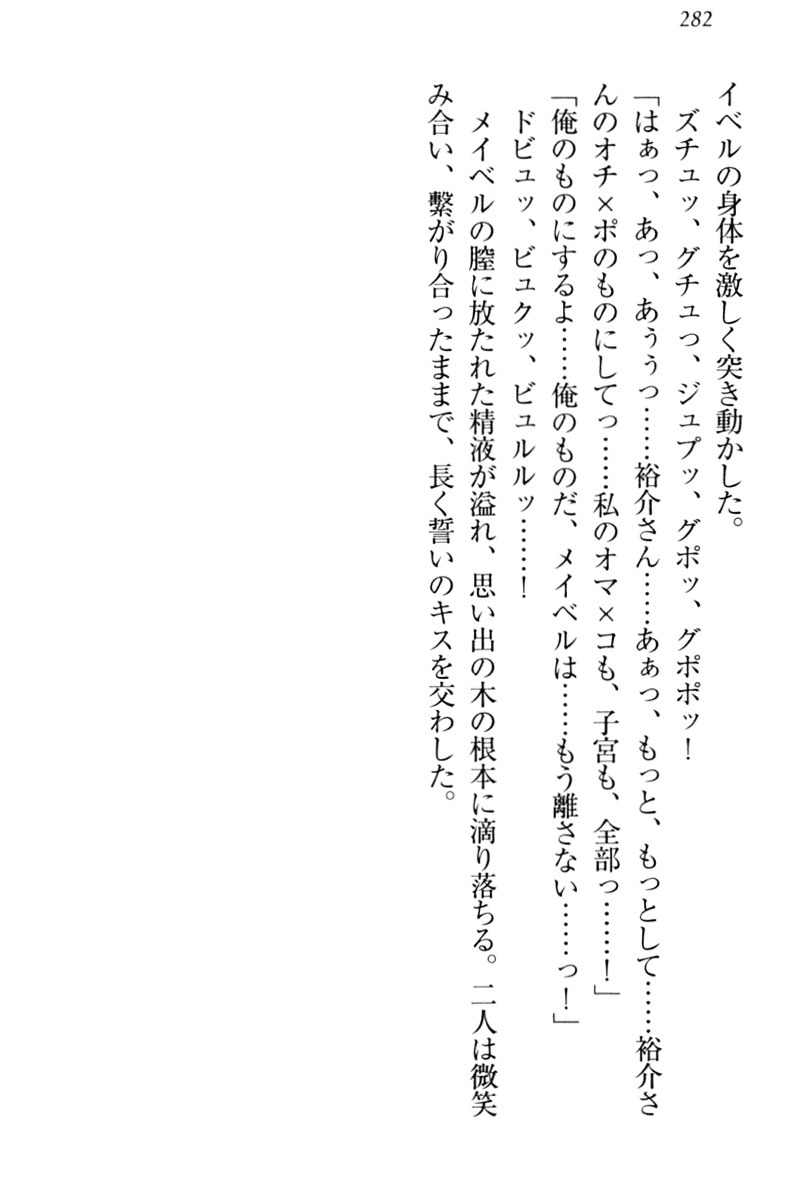 282
イベルの身体を激しく突き動かした。
　ズチュッ、グチュっ、ジュプッ、グポッ、グポポッ！
「はぁっ、あっ、あぅぅっ……裕介さん……あぁっ、もっと、もっとして……裕介さ
んのオチ×ポのものにしてっ……私のオマ×コも、子宮も、全部っ……！」
「俺のものにするよ……俺のものだ、メイベルは……もう離さない……っ！」
　ドビュッ、ビュクッ、ビュルルッ……！
　メイベルの膣に放たれた精液が溢れ、思い出の木の根本に滴り落ちる。二人は微笑
み合い、繋がり合ったままで、長く誓いのキスを交わした。